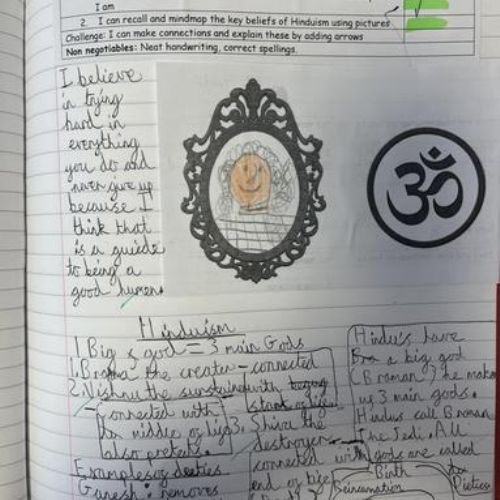 I am
2. I can recall and mindmap the key beliefs of Hinduism using pictures
Challenge: I can make connections and explain these by adding arrows
Non negotiables: Neat handwriting, correct spellings.
I believe
in trying
hard in
everything
you do and
never give up
because I
think that
is a guide
to being a
good human.
ॐ
Hinduism
1 Big god = 3 main Gods
1. the creater - connected
with
start of life.
2. Vishnu the
- connected with
middle of life
also protects.
3. Shiva the
destroyer -
connected with
end of life
Examples of deeties
Ganesh: removes
Hindu's have
a big god
(Broman) he makes
up 3 main gods.
Hindus call Broman
The Jedi. All
gods are called
Dieties
Birth
Reincarnation